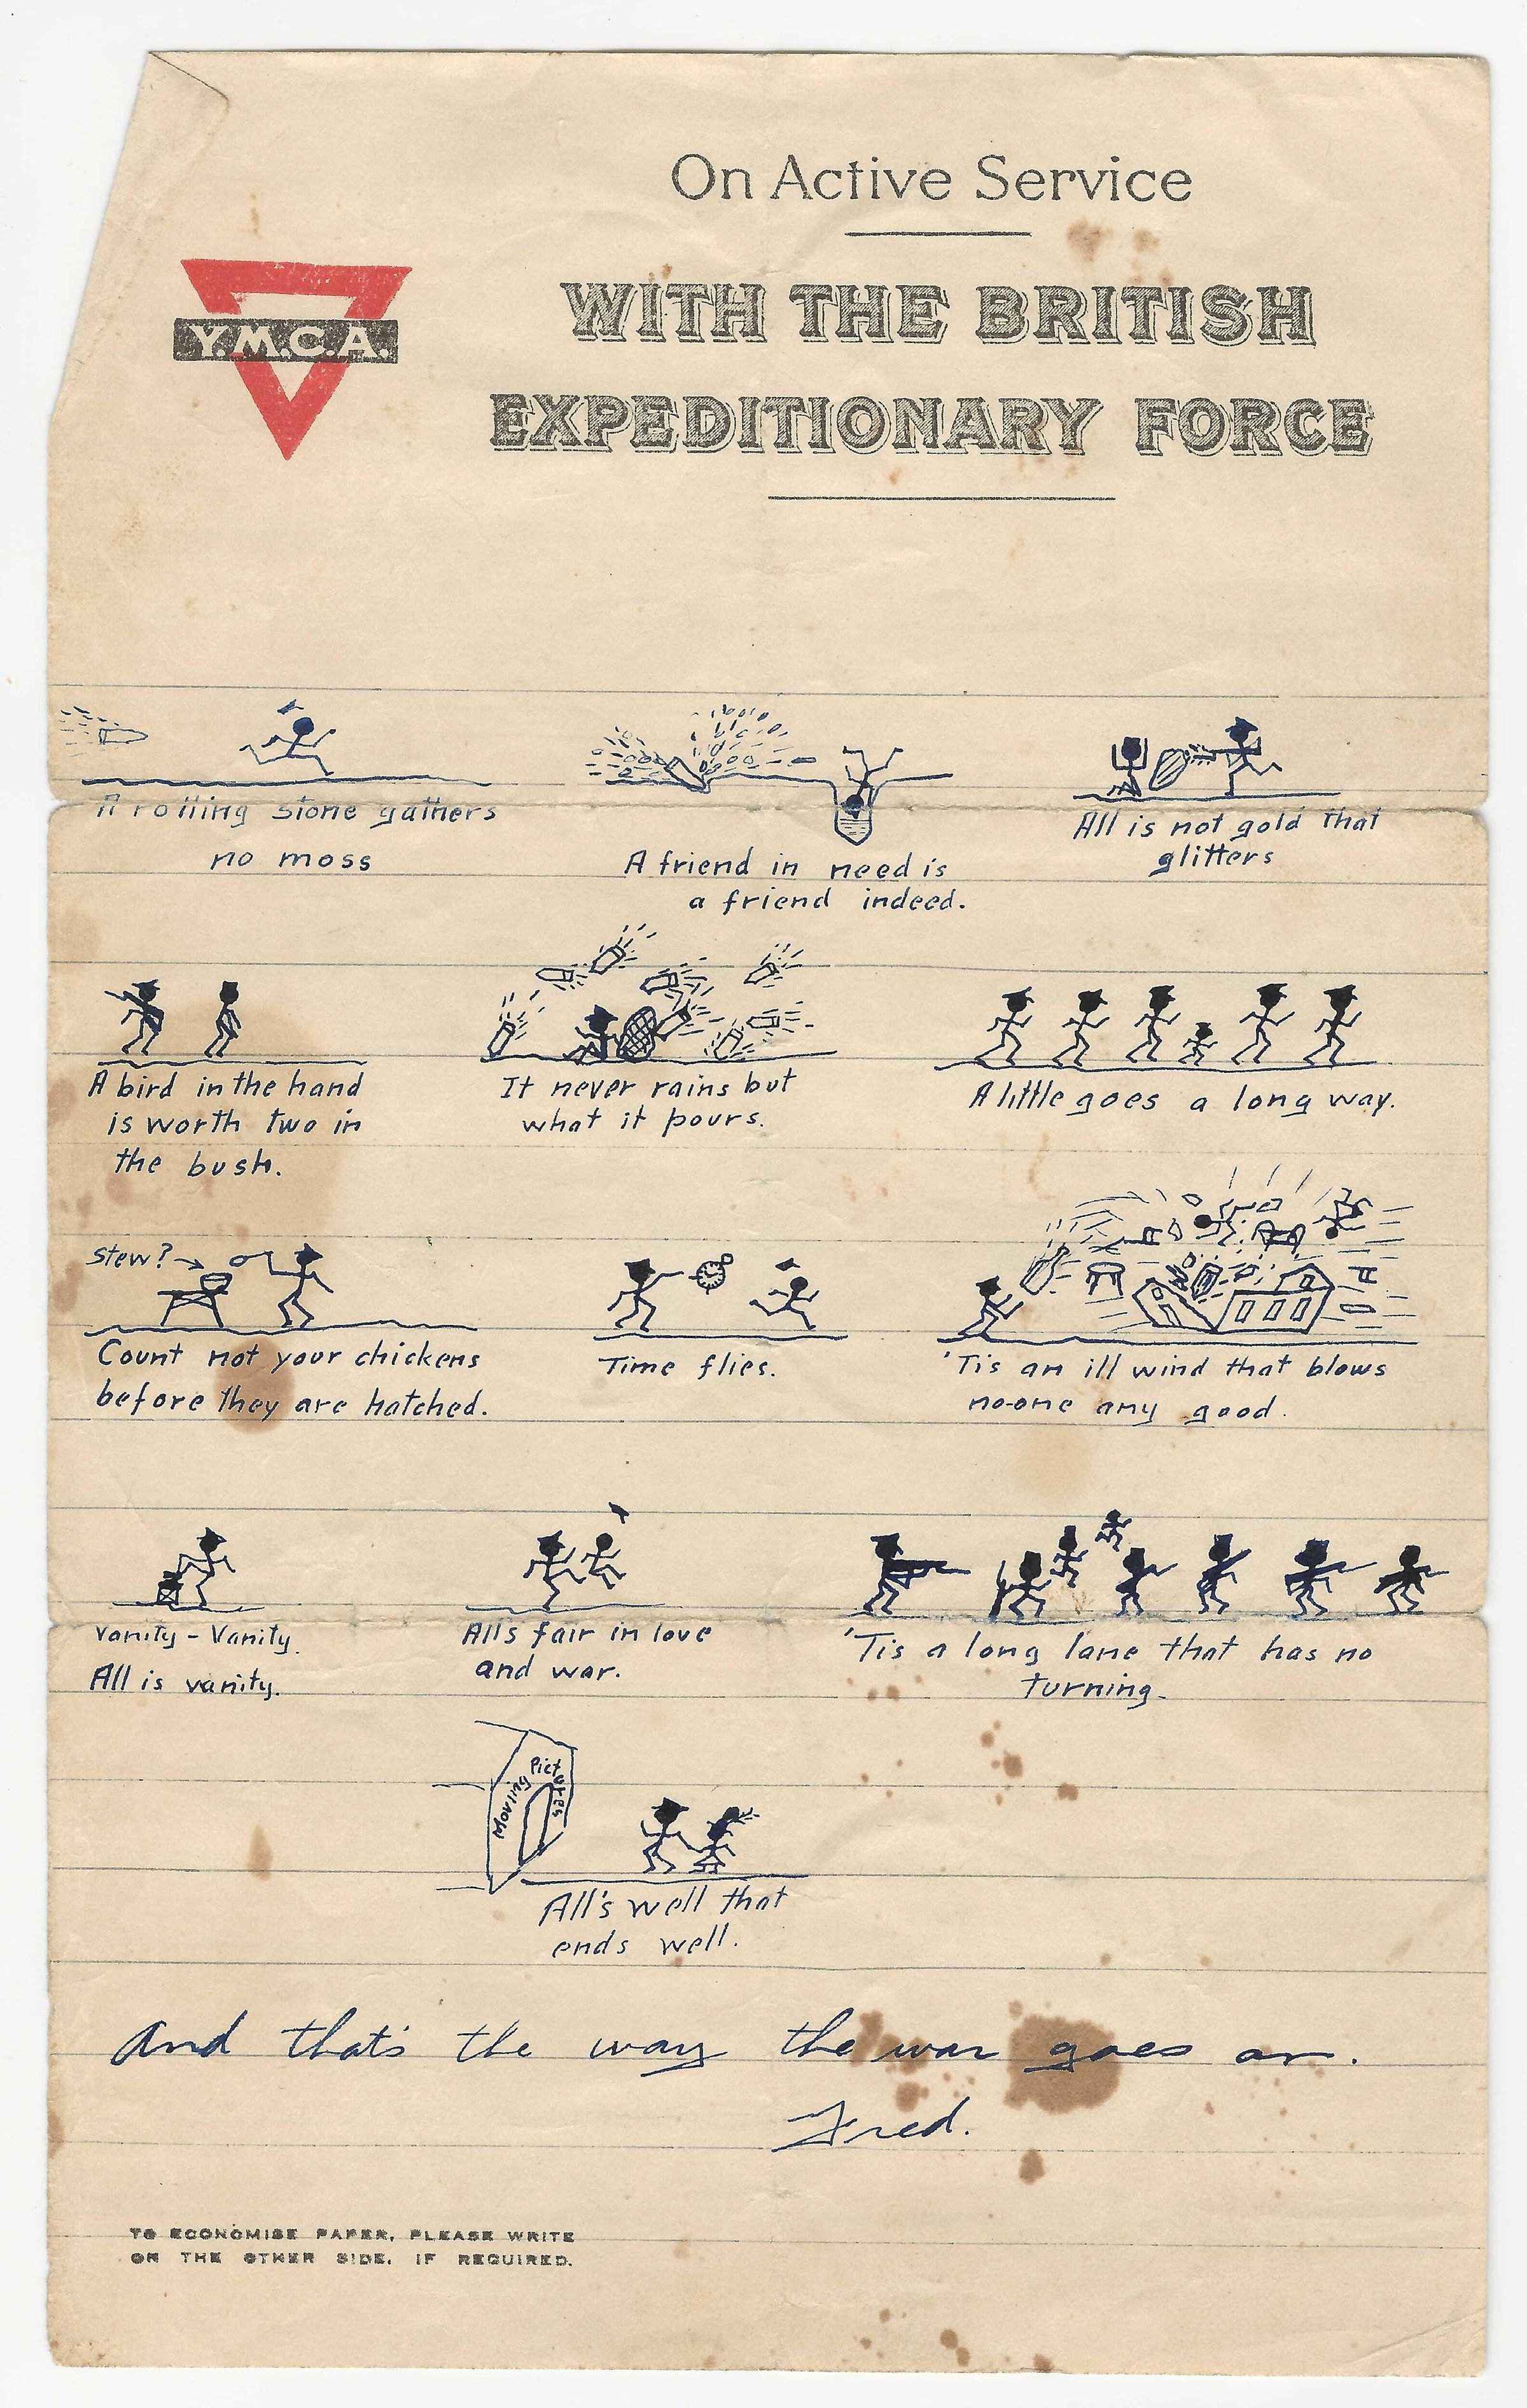 On Active Service
WITH THE BRITISH
EXPEDITIONARY FORCE
Y.M.C.A.
A rolling stone gathers
no moss
A friend in need is
a friend indeed.
All is not gold that
glitters
A bird in the hand
is worth two in
the bush.
It never rains but
what it pours.
A little goes a long way.
Stew?
Count not your chickens
before they are hatched.
Time flies.
'Tis an ill wind that blows
no-one any good.
Vanity - Vanity.
All is vanity.
All's fair in love
and war.
'Tis a long lane that has no
turning.
Moving Pictures
All's well that
ends well.
And that's the way the war goes on.
Fred.
TO ECONOMISE PAPER, PLEASE WRITE
ON THE OTHER SIDE, IF REQUIRED.